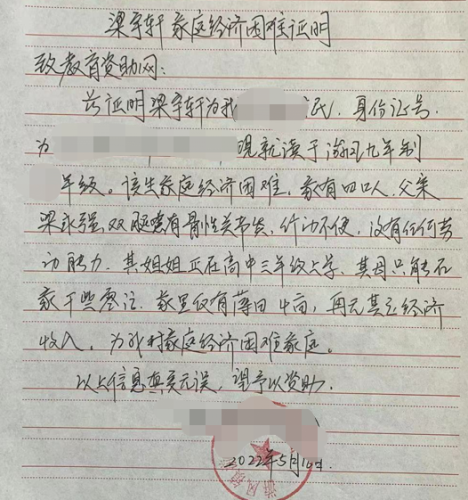 梁宇轩 家庭经济困难证明
致教育资助网:
兹证明梁宇轩为我 民, 身份证号
为 现就读于 九年制
年级。该生家庭经济困难, 家有四口人, 父亲
梁永强, 双腿患有骨性关节炎, 行动不便, 没有任何劳
动能力, 其姐姐正在高中三年级上学, 其母只能在
家干些零活. 家里仅有薄田 亩, 再无其它经济
收入, 为我村家庭经济困难家庭。
以上信息真实无误, 望予以资助.
2022年5月14日.